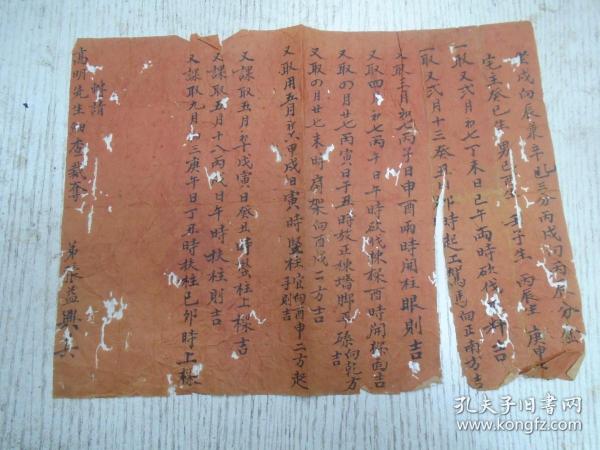 戌向辰兼辛 三分丙戌 丙辰分
宅主癸巳生 男己 壬子生 丙辰生 庚申
一取又弍月初七丁未日巳午兩時砍伐 料吉
一取又弍月十三癸丑日卯時起工駕馬向正南方吉
又取三月初七丙子日申酉兩時開柱眼則吉
又取四月初七丙午日午時砍伐棟樑酉時開樑面吉
又取四月廿七丙寅日午丑時放正棟墻脚下磉向乾方吉
又取四月廿七未時肩架向酉戌二方吉
又取用五月初六甲戌日寅時竪柱宜向酉申二方起
子則吉
又課取五月初十戊寅日癸丑時竪柱上樑吉
又課取五月十八丙戌日午時扶柱則吉
又課取九月 三庚午日丁丑時扶柱己卯時上樑
轉請
高明先生細查裁奪
弟 益興具
孔夫子旧书网
www.kongfz.com